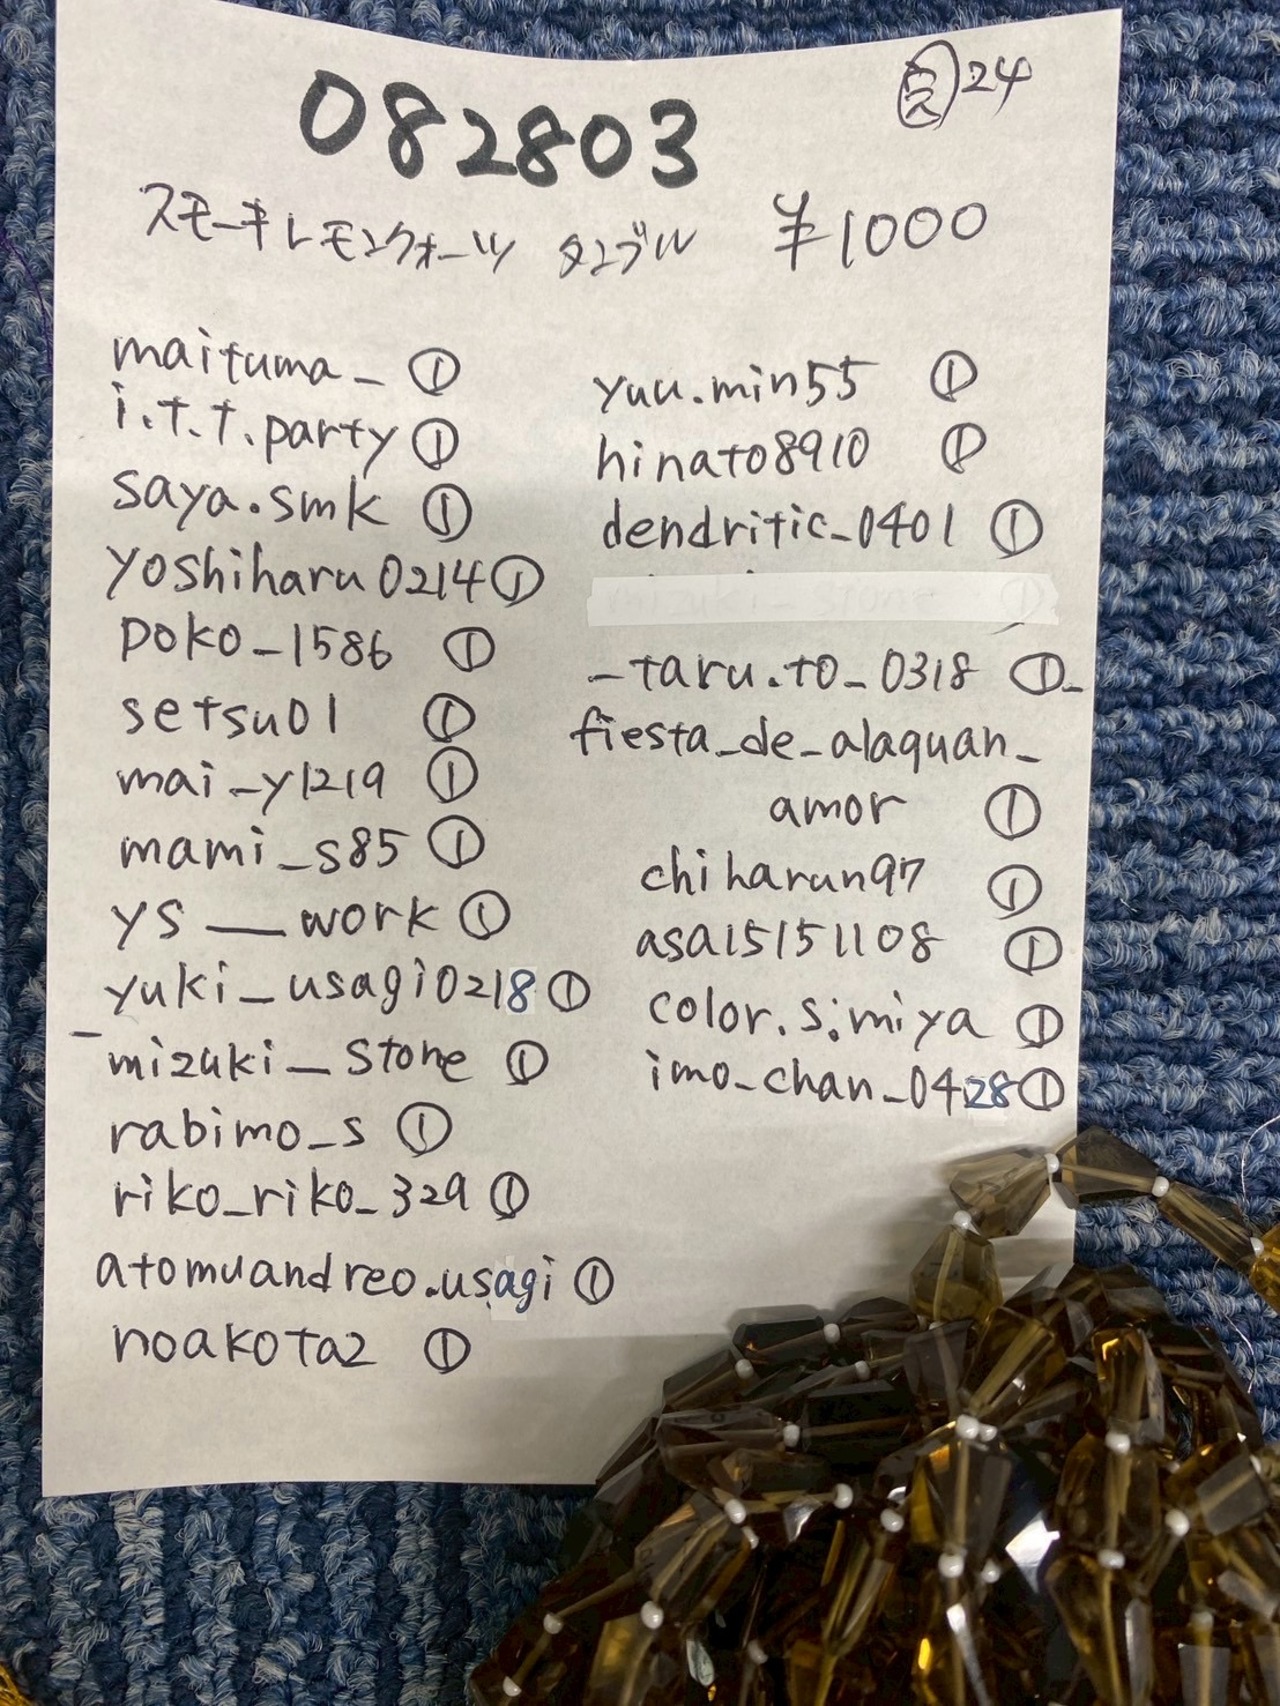 082803
良 24
スモーキレモンクォーツ タンブル ¥1000
maituma_ ①
i.t.t.party ①
saya.smk ①
yoshiharu0214 ①
poko_1586 ①
setsu01 ①
mai_y1219 ①
mami_s85 ①
ys__work ①
yuki_usagi0218 ①
_mizuki_stone ①
rabimo_s ①
riko_riko_329 ①
atomuandreo.usagi ①
noakota2 ①
yuu.min55 ①
hinato8910 ①
dendritic_0401 ①
_taru.to_0318 ①_
fiesta_de_alaquan_
amor ①
chiharun97 ①
asa15151108 ①
color.s.miya ①
imo_chan_0428 ①